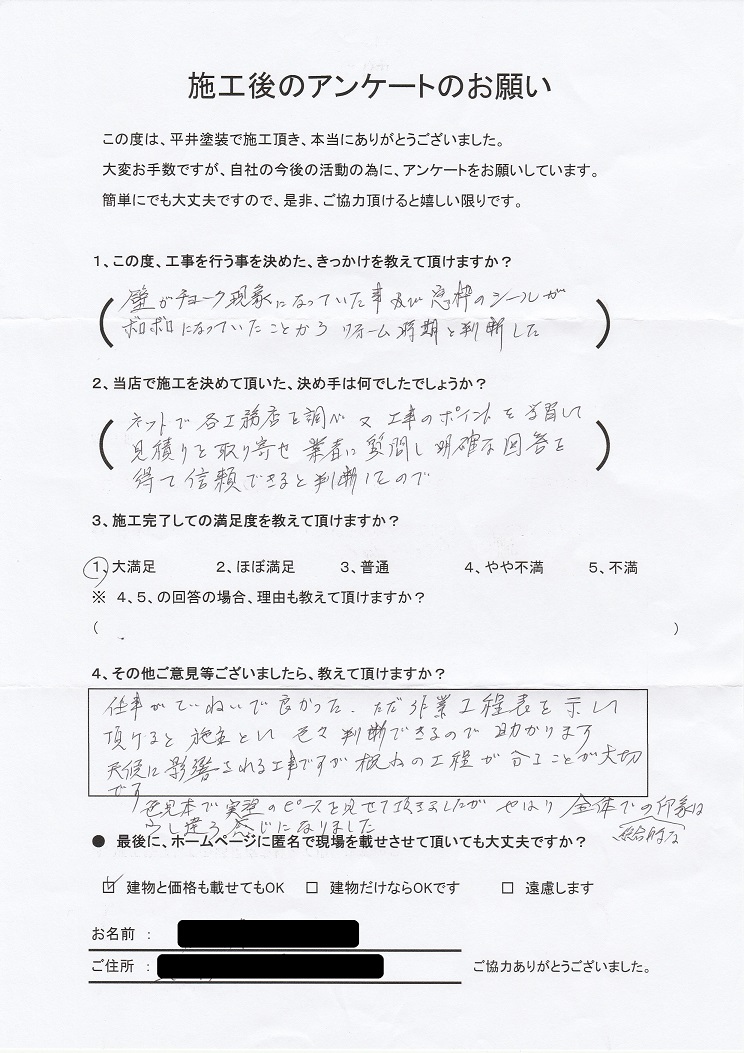 施工後のアンケートのお願い
この度は、平井塗装で施工頂き、本当にありがとうございました。
大変お手数ですが、自社の今後の活動の為に、アンケートをお願いしています。
簡単にでも大丈夫ですので、是非、ご協力頂けると嬉しい限りです。
1、この度、工事を行う事を決めた、きっかけを教えて頂けますか？
壁がチョーク現象になっていた事及び窓枠のシールが
ボロボロになっていたことからリフォーム時期と判断した
2、当店で施工を決めて頂いた、決め手は何でしたでしょうか？
ネットで各工務店を調べ又工事のポイントを学習して
見積りを取り寄せ業者に質問し明確な回答を
得て信頼できると判断したので
3、施工完了しての満足度を教えて頂けますか？
1、大満足 2、ほぼ満足 3、普通 4、やや不満 5、不満
※ 4、5、の回答の場合、理由も教えて頂けますか？
( )
4、その他ご意見等ございましたら、教えて頂けますか？
仕事がていねいで良かった。ただ作業工程表を示して
頂けると施主として色々判断できるので助かります
天候に影響される工事ですが概ねの工程が分ることが大切
です
色見本で実望のピースを見せて頂きましたがやはり全体での印象は
少し違う感じになりました
総合的な
● 最後に、ホームページに匿名で現場を載せさせて頂いても大丈夫ですか？
☑ 建物と価格も載せてもOK □ 建物だけならOKです □ 遠慮します
お名前 ：
ご住所 ： ご協力ありがとうございました。